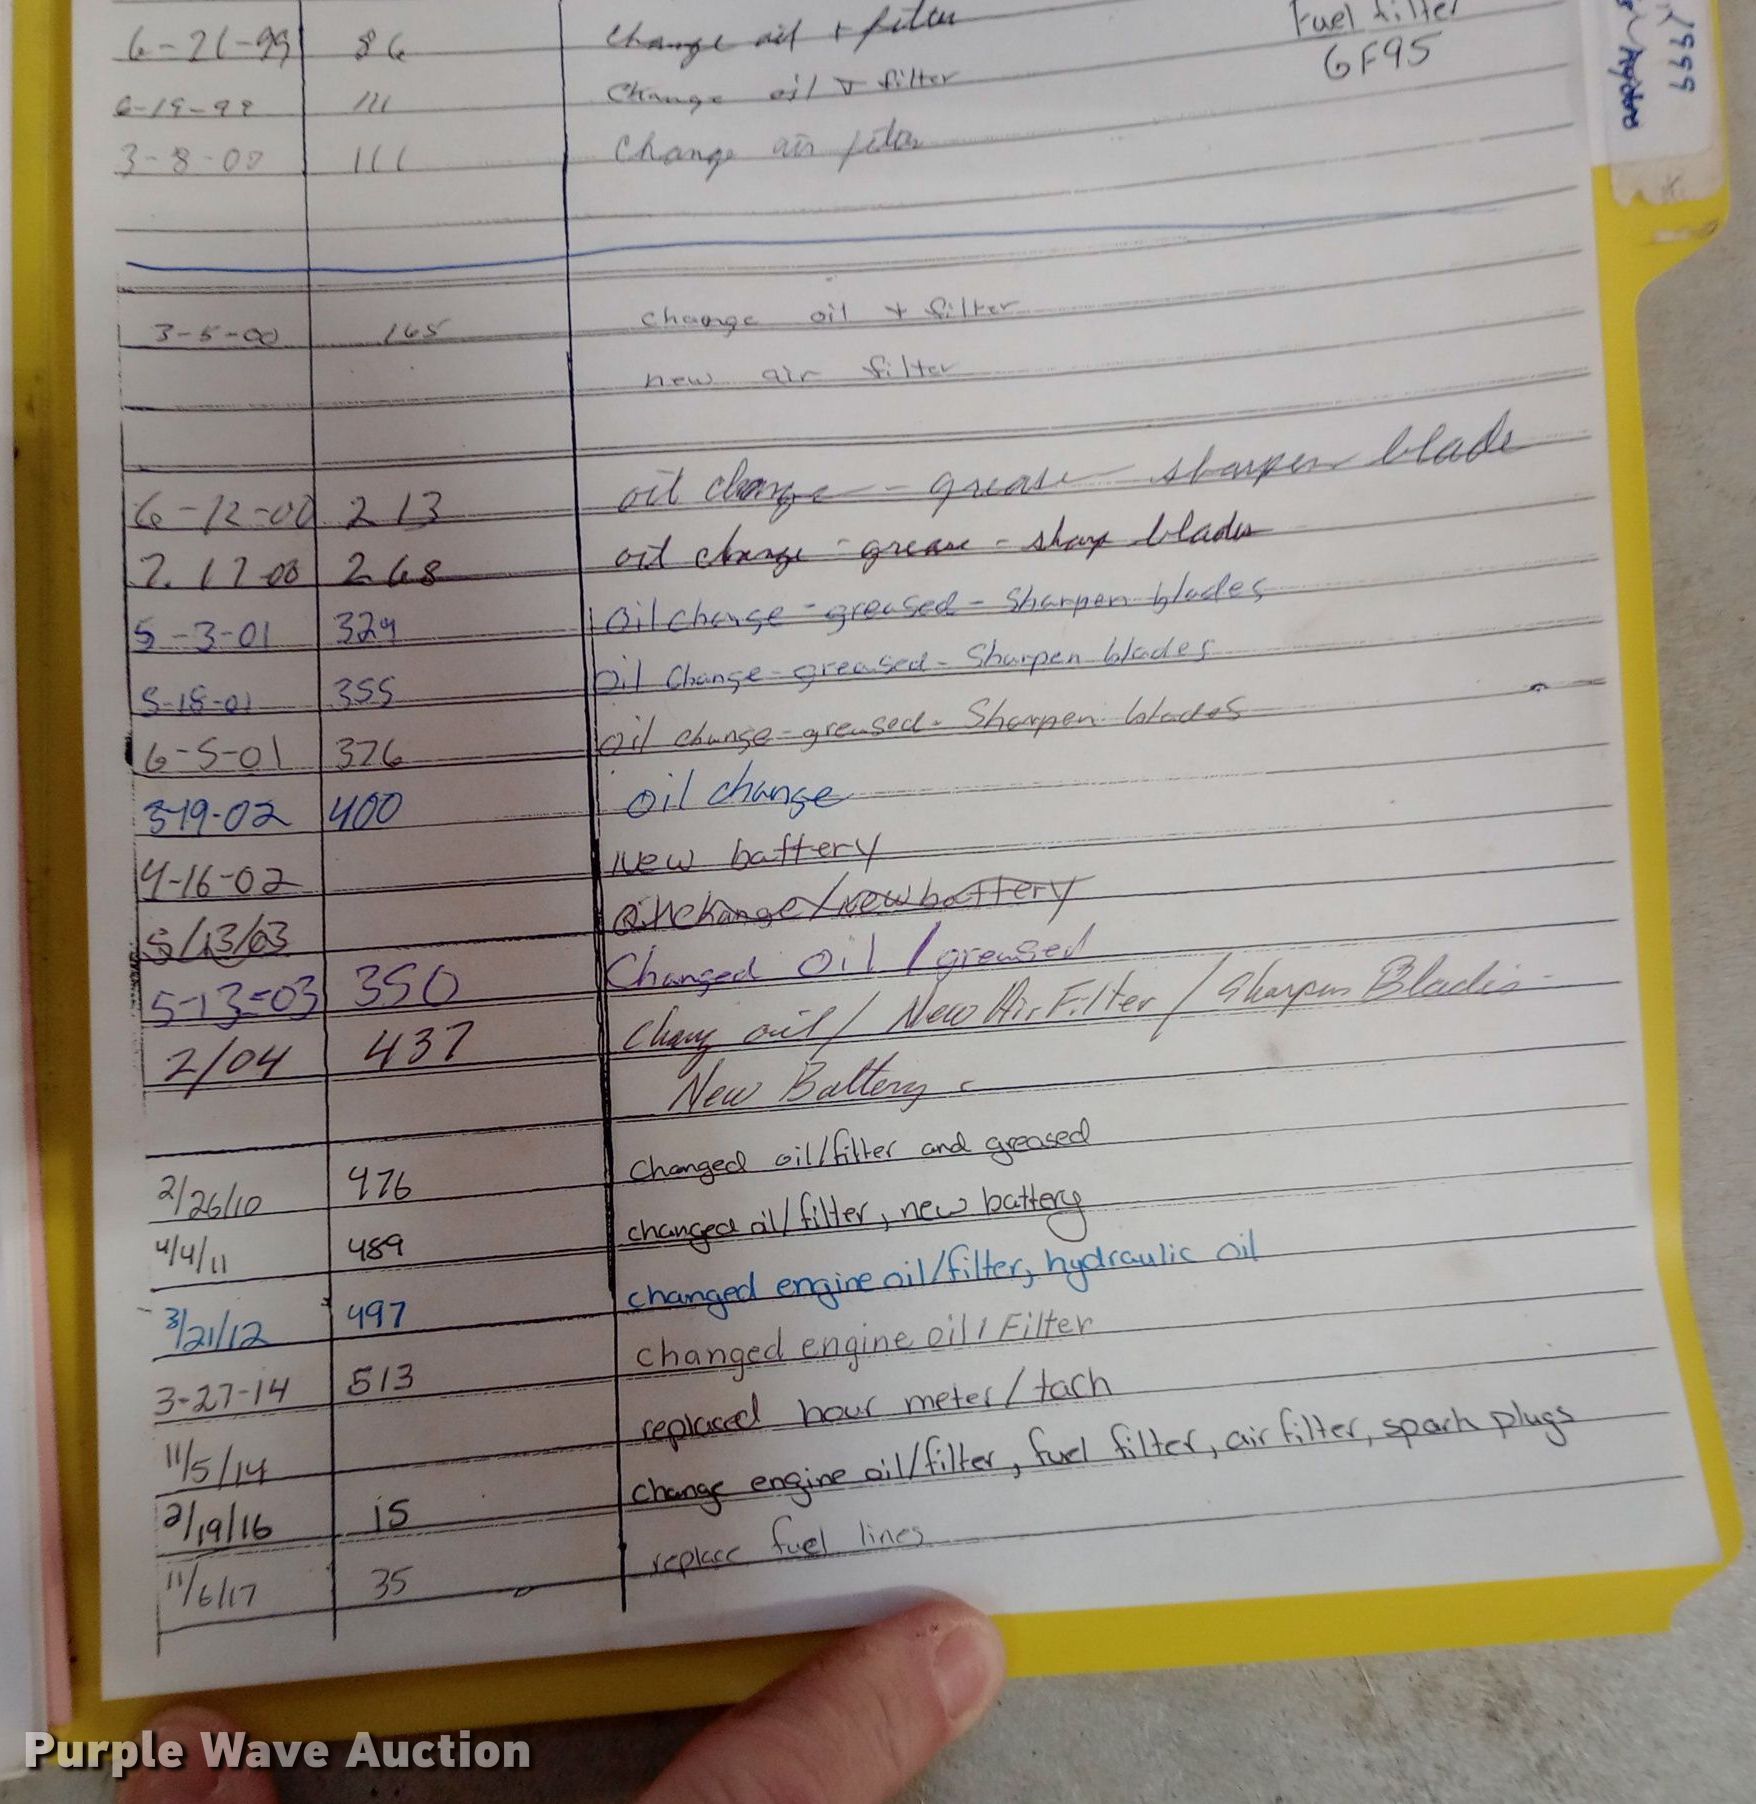 Fuel filter
6-21-99 86 change oil + filter
GF95
6-19-99 111 change oil + filter
3-8-00 111 change air filter
1999
3-5-00 165 change oil + filter
new air filter
6-12-00 213 oil change - grease - sharpen blade
7.17-00 268 oil change - grease - sharp blades
5-3-01 329 oil change - greased - Sharpen blades
5-18-01 355 oil change - greased - Sharpen blades
6-5-01 376 oil change - greased - Sharpen blades
3-19-02 400 oil change
4-16-02 New battery
5/13/03 Oil change/new battery
5-13-03 350 Changed Oil / greased
2/04 437 Chang oil / New Air Filter / Sharpen Blades
New Battery
2/26/10 476 changed oil/filter and greased
4/4/11 489 changed oil/filter, new battery
3/21/12 497 changed engine oil/filter, hydraulic oil
3-27-14 513 changed engine oil / Filter
11/5/14 replaced hour meter/tach
2/19/16 15 change engine oil/filter, fuel filter, air filter, spark plugs
11/6/17 35 replace fuel lines
Purple Wave Auction